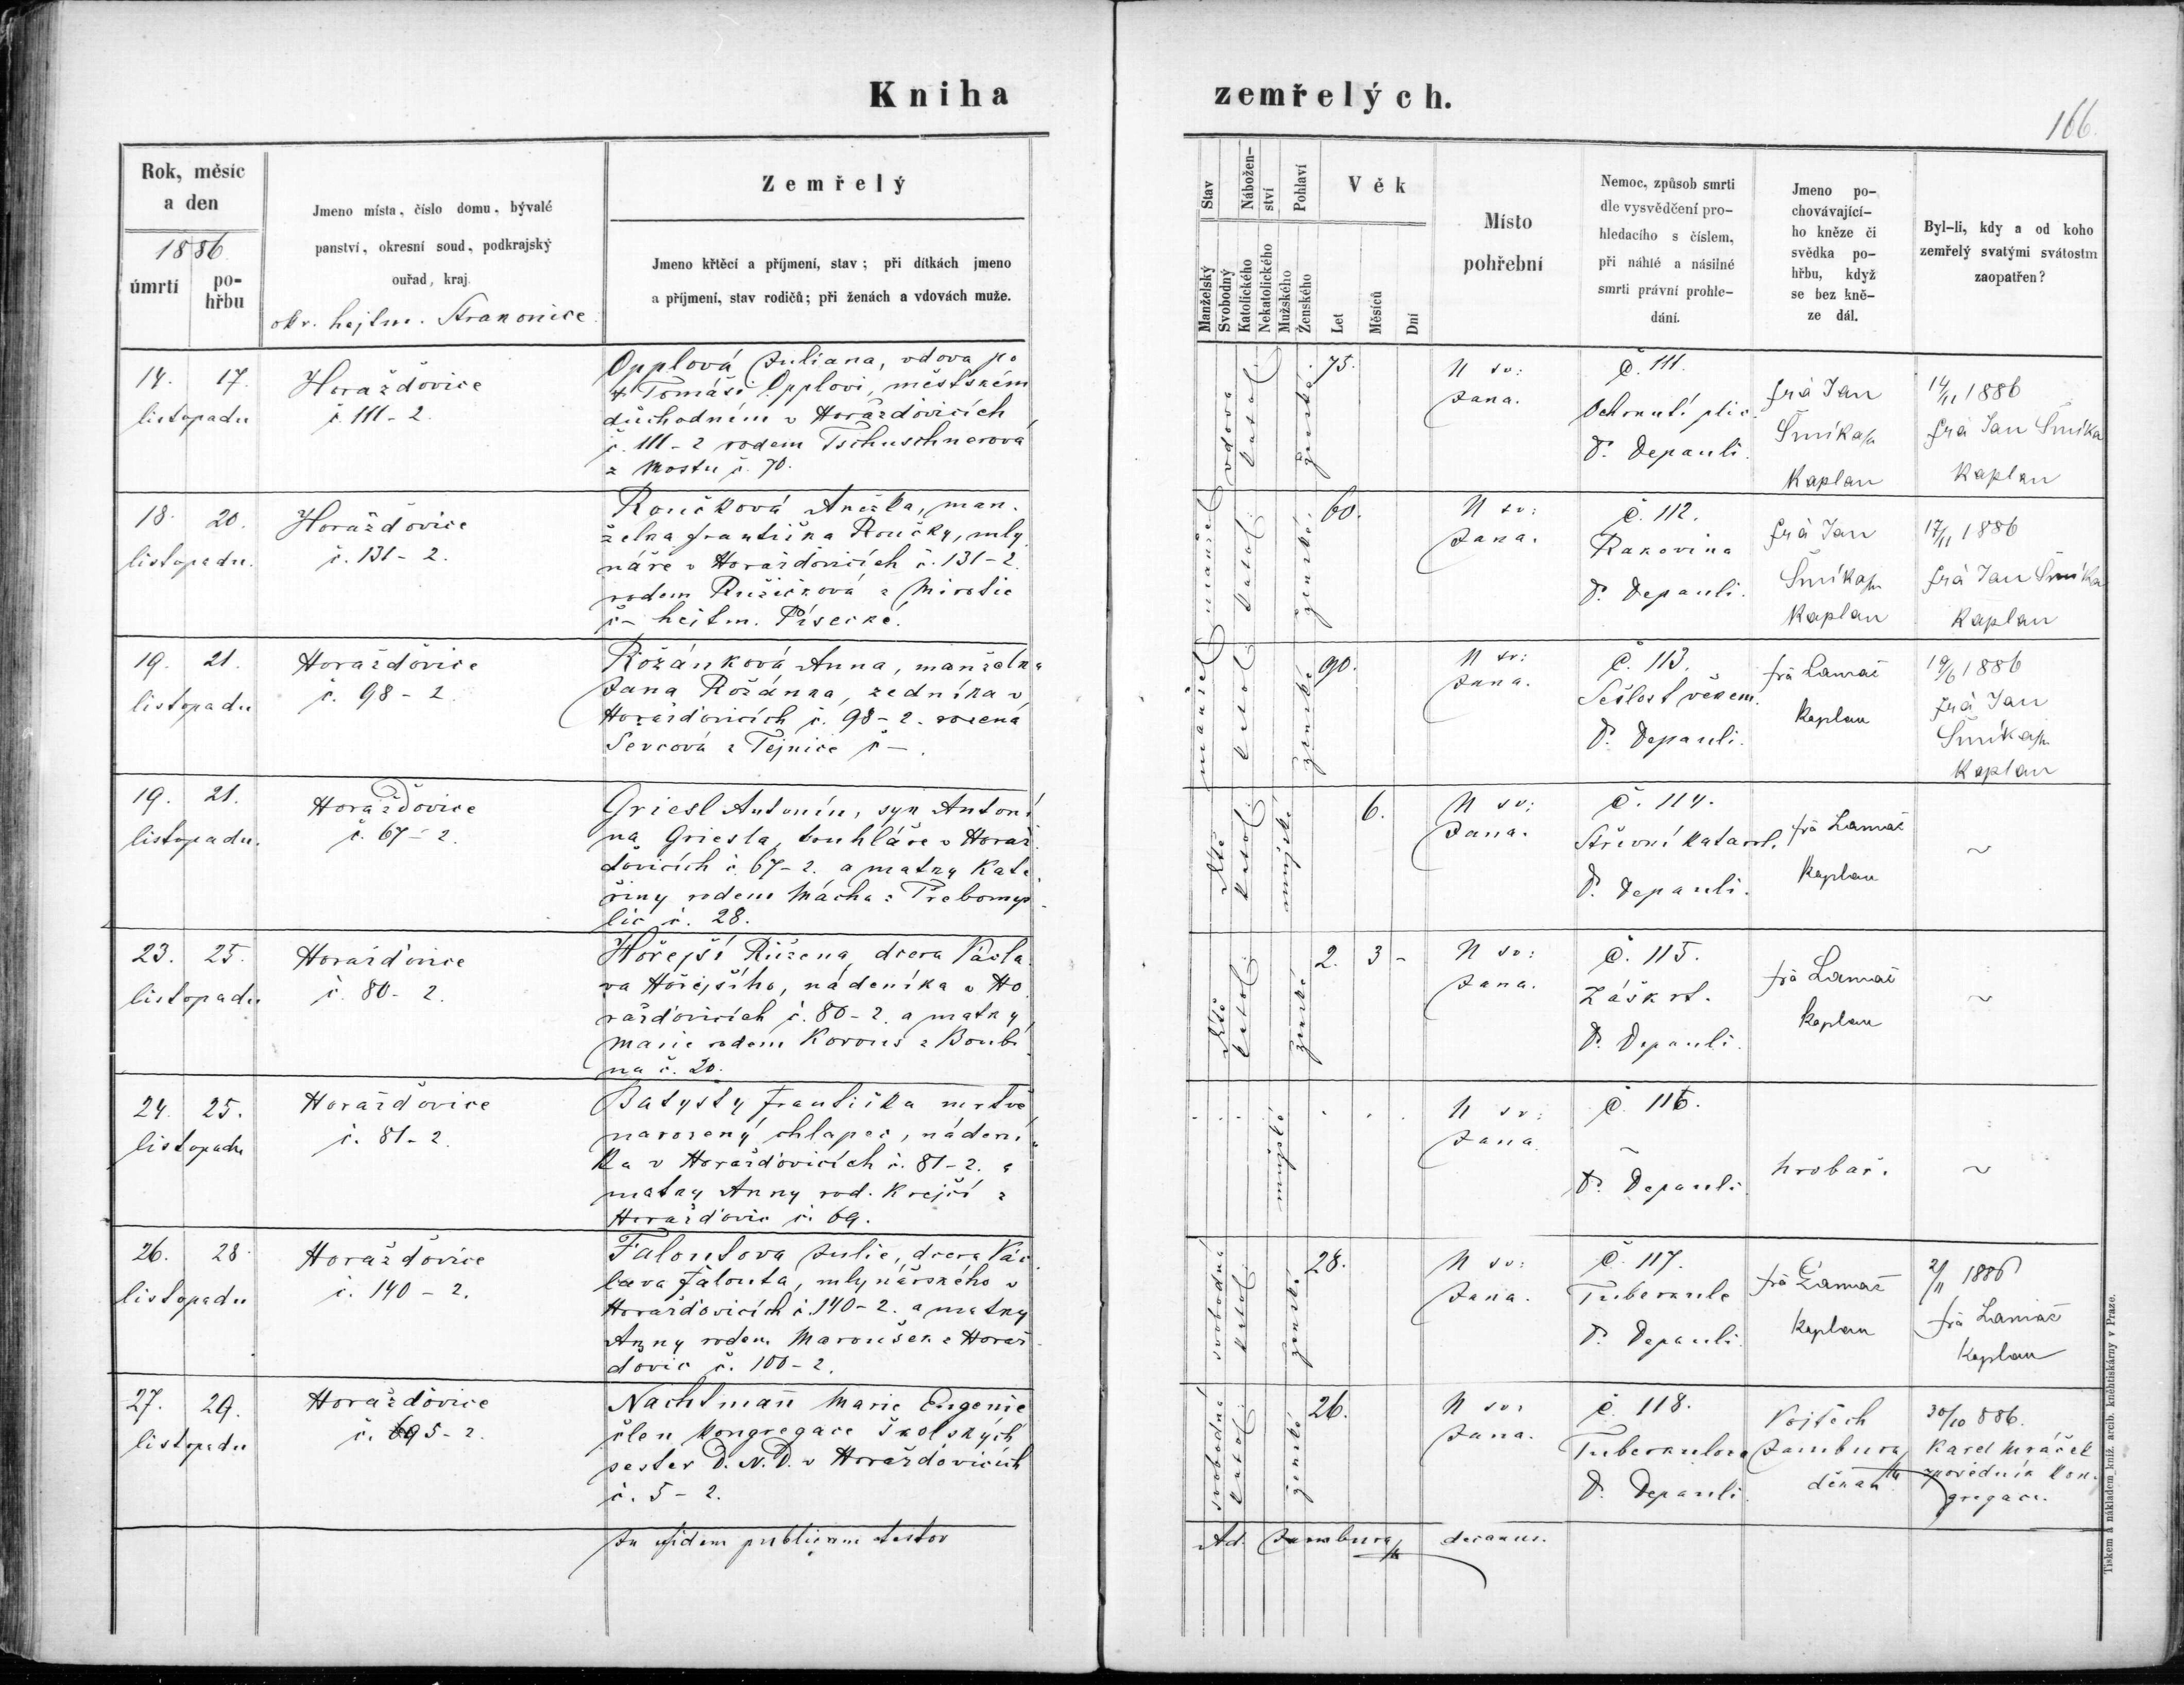 Kniha
zemřelých.
166.
Rok, měsíc
a den
1886
úmrtí
po-
hřbu
Jmeno místa, číslo domu, bývalé
panství, okresní soud, podkrajský
ouřad, kraj.
okr. hejtm. Strakonice
Zemřelý
Jmeno křtěcí a příjmení, stav; při dítkách jmeno
a příjmení, stav rodičů; při ženách a vdovách muže.
Stav
Nábožen-
ství
Pohlaví
Věk
Manželský
Svobodný
Katolického
Nekatolického
Mužského
Ženského
Let
Měsíců
Dní
Místo
pohřební
Nemoc, způsob smrti
dle vysvědčení pro-
hledacího s číslem,
při náhlé a násilné
smrti právní prohle-
dání.
Jmeno po-
chovávající-
ho kněze či
svědka po-
hřbu, když
se bez kně-
ze dál.
Byl-li, kdy a od koho
zemřelý svatými svátostm
zaopatřen?
14. 17.
listopadu
Horažďovice
č. 111 - 2.
Opplová Juliana, vdova po
† Tomáši Opplovi, městském
důchodním v Horažďovicích
č. 111 - 2 rodem Tschuschnerová
z Mostu č. 70.
vdova
katol.
ženské
75.
U sv:
Jana.
č. 111.
Ochrnutí plic.
D. Depauli.
frà Jan
Šmíka
Kaplan
14/11 1886
frà Jan Šmíka
Kaplan
18. 20.
listopadu.
Horažďovice
č. 131 - 2.
Roučková Anežka, man.
želka Františka Roučky, mly
náře v Horažďovicích č. 131 - 2.
rodem Růžičková z Mirotic
č - hejtm. Písecké.
manžel
katol.
ženské
60.
U sv:
Jana.
č. 112.
Rakovina
D. Depauli.
frà Jan
Šmíka
Kaplan
17/11 1886
frà Jan Šmíka
Kaplan
19. 21.
listopadu
Horažďovice
č. 98 - 2.
Rožánková Anna, manželka
Jana Rožánka, zedníka v
Horažďovicích č. 98 - 2. rozená
Sevcová z Tejnice č - .
manžel
katol.
ženské
90.
U sv:
Jana.
č. 113.
Sešlost věkem.
D. Depauli.
frà Lamač
Kaplan
frà Jan
Šmíka
Kaplan
19. 21.
listopadu.
Horažďovice
č. 67 - 2.
Griesl Antonín, syn Antoní
na Griesla, truhláře v Horaž
ďovicích č. 67 - 2. a matky Kate
řiny rodem Mácha z Třebomys
lic č. 28.
dítě
katol.
mužské
6.
U sv:
Jana.
č. 114.
Střevní katarh.
D. Depauli.
frà Lamač
Kaplan
~
23. 25.
listopadu
Horažďovice
č. 80 - 2.
Hořejší Růžena, dcera Václa
va Hořejšího, nádeníka v Ho
ražďovicích č. 80 - 2. a matky
Marie rodem Korous z Boubí
na č. 20.
dítě
katol.
ženské
2. 3 -
U sv:
Jana.
č. 115.
Záškrt.
D. Depauli.
frà Lamač
Kaplan
~
24. 25.
listopadu
Horažďovice
č. 81 - 2.
Batysty Františka mrtvě
narozený chlapec, nádení
ka v Horažďovicích č. 81 - 2. a
matky Anny rod. Krejčí z
Horažďovic č. 69.
mužské
U sv:
Jana
č. 116.
~
D. Depauli.
hrobař.
~
26. 28.
listopadu
Horažďovice
č. 140 - 2.
Faloutova Julie, dcera Vác
lava Falouta, mlynářského v
Horažďovicích č. 140 - 2. a matky
Anny rodem Maroušek z Horaž
ďovic č. 100 - 2.
svobodná
katol.
ženské
28.
U sv:
Jana.
č. 117.
Tuberkule
D. Depauli.
frà Lamač
Kaplan
2/11 1886
frà Lamač
Kaplan
27. 29.
listopadu
Horažďovice
č. 5 - 2.
Nachtmann Marie Eugenie
člen Kongregace Školských
sester D. N. D. v Horažďovicích
č. 5 - 2.
svobodná
katol.
ženské
26.
U sv:
Jana.
č. 118.
Tuberkulosa
D. Depauli.
Vojtěch
Jambura
děkan
30/10 886.
Karel Mráček
zpovědník kon-
gregace.
In fidem publicam testor
Ad. Jambura decanus.
Tiskem a nákladem kníž. arcib. kněhtiskárny v Praze.